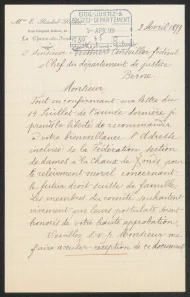 2 Avril 1899
EIDG. JUSTIZ- &
POLIZEI-DEPARTEMENT
3. APR. 99
Monsieur Conseiller fédéral
Chef du département de justice
Berne.
Monsieur
Tout en confirmant ma lettre du
14 Juillet de l'année dernière je
prends la liberté de recommander
à votre bienveillance l'Adresse
incluse de la Fédération, section
de dames à la Chaux de Fonds pour
le relèvement moral concernant
le futur droit civil de famille.
Les membres du comité souhaitent
vivement que leurs postulats soient
honorés de votre haute approbation.
Veuillez s.v.p. Monsieur me
faire accuser réception de ce document